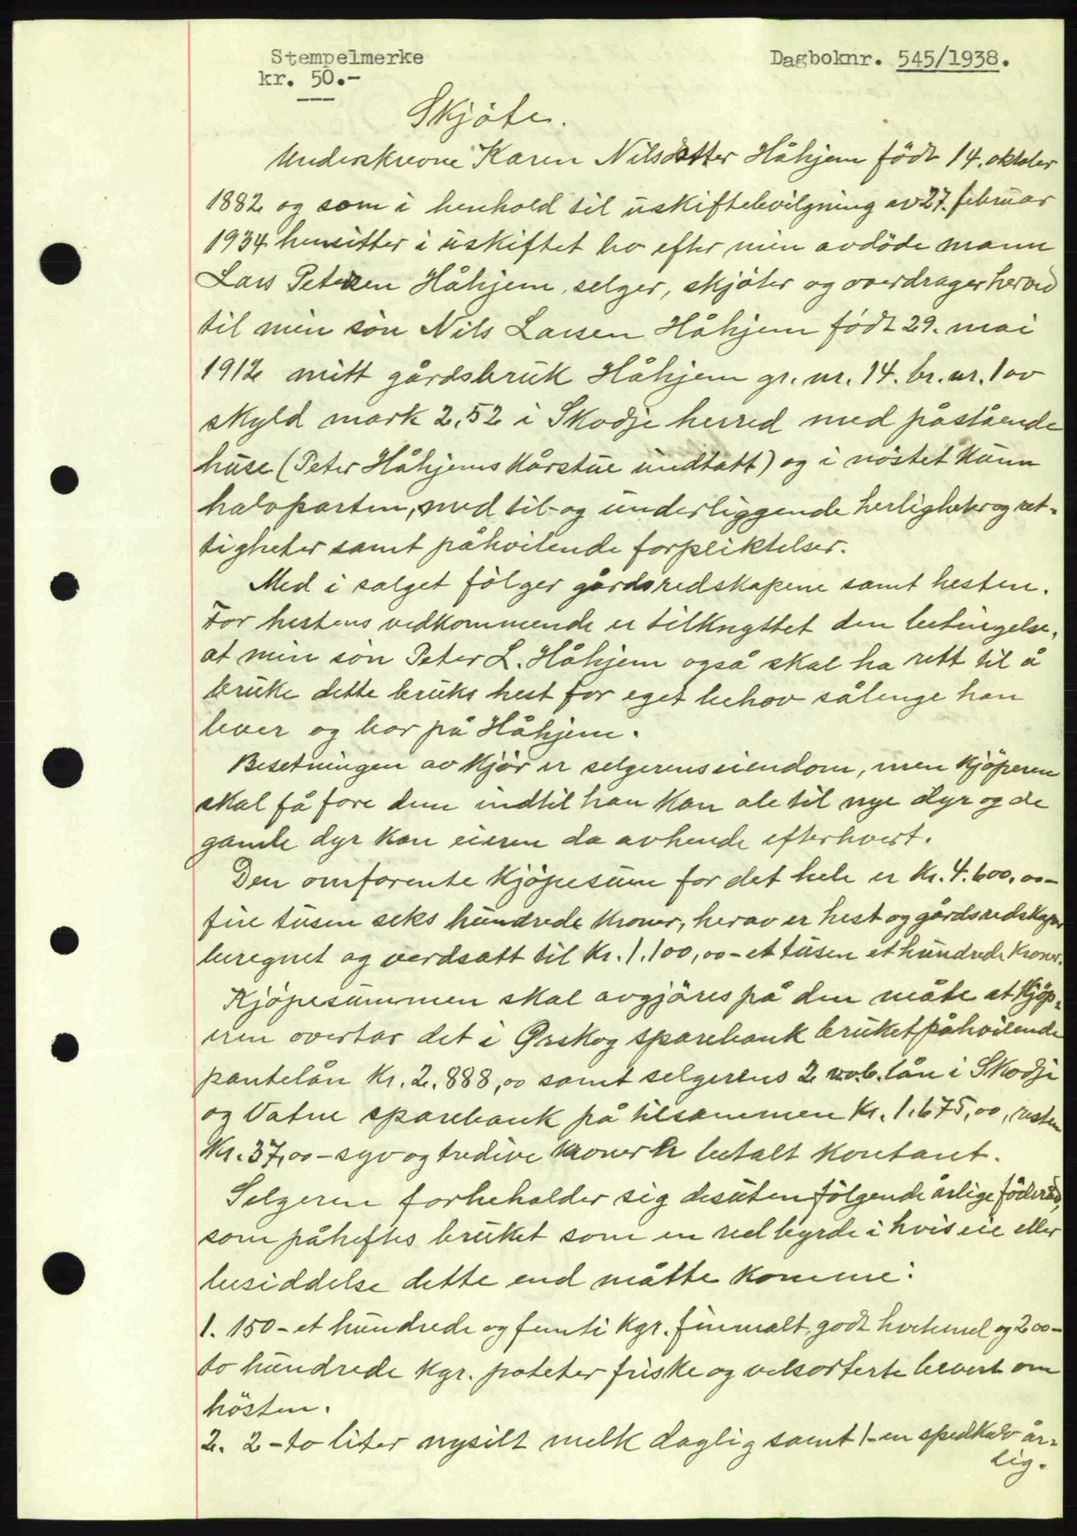 Stempelmerke
kr. 50.-
Dagboknr. 545/1938.
Skjøte.
Underskrevne Karen Nilsdatter Håhjem født 14. oktober
1882 og som i henhold til uskiftebevilgning av 27. februar
1934 hensitter i uskiftet bo efter min avdöde mann
Lars Petersen Håhjem, selger, skjöter og overdrager herved
til min sön Nils Larsen Håhjem född 29. mai
1912 mitt gårdsbruk Håhjem gr. nr. 14. br. nr. 1 av
skyld mark 2,52 i Skodje herred med påstående
huse (Peter Håhjems kårstue undtatt) og i nöstet kun
halvparten, med til- og underliggende herligheter og ret-
tigheter samt påhvilende forpliktelser.
Med i salget fölger gårdsredskapene samt hesten.
For hestens vedkommende er tilknyttet den betingelse,
at min sön Peter L. Håhjem også skal ha rett til å
bruke dette bruks hest for eget behov sålenge han
lever og bor på Håhjem.
Besetningen av kjör er selgerens eiendom, men kjöperen
skal få fore dem indtil han kan ale til nye dyr og de
gamle dyr kan eieren da avhende efterhvert.
Den omforente kjöpesum for det hele er kr. 4.600,00-
fire tusen seks hundrede kroner, herav er hest og gårdsredskaper
beregnet og verdsatt til kr. 1.100,00- et tusen et hundrede kroner.
Kjöpesummen skal avgjöres på den måte at kjöp-
eren overtar det i Ørskog sparebank bruket påhvilende
pantelån kr. 2.888,00 samt selgerens 2 vx.b. lån i Skodje
og Vatne sparebank på tilsammen kr. 1.675,00, resten
kr. 37,00- syv og tredive kroner er betalt kontant.
Selgeren forbeholder sig desuten fölgende årlige föderåd,
som påheftes bruket som en red byrde i hvis eie eller
besiddelse dette end måtte komme:
1. 150- et hundrede og femti kgr. finmalt, godt hvetemel og 200-
to hundrede kgr. poteter friske og velsorterte levert om
hösten.
2. 2- to liter nysilt melk daglig samt 1- en spedkalv år-
lig.